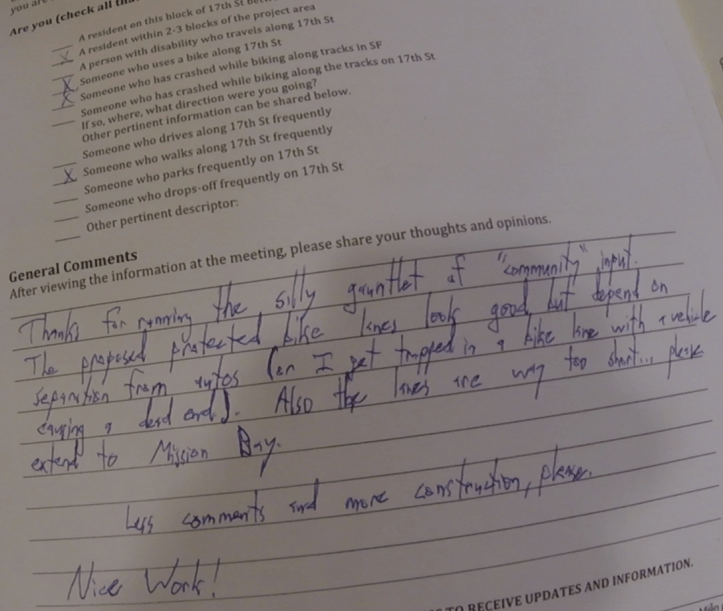 you are
Are you (check all tha
A resident on this block of 17th St
X A resident within 2-3 blocks of the project area
A person with disability who travels along 17th St
X Someone who uses a bike along 17th St
X Someone who has crashed while biking along tracks in SF
Someone who has crashed while biking along the tracks on 17th St
If so, where, what direction were you going?
Other pertinent information can be shared below.
Someone who drives along 17th St frequently
X Someone who walks along 17th St frequently
Someone who parks frequently on 17th St
Someone who drops-off frequently on 17th St
Other pertinent descriptor:
General Comments
After viewing the information at the meeting, please share your thoughts and opinions.
Thanks for running the silly gauntlet of "community" input.
The proposed protected bike lanes look good, but depend on
separation from autos (or I get trapped in a bike lane with a vehicle
causing a dead end). Also the lanes are way too short... please
extend to Mission Bay.
Less comments and more construction, please.
Nice Work!
TO RECEIVE UPDATES AND INFORMATION.